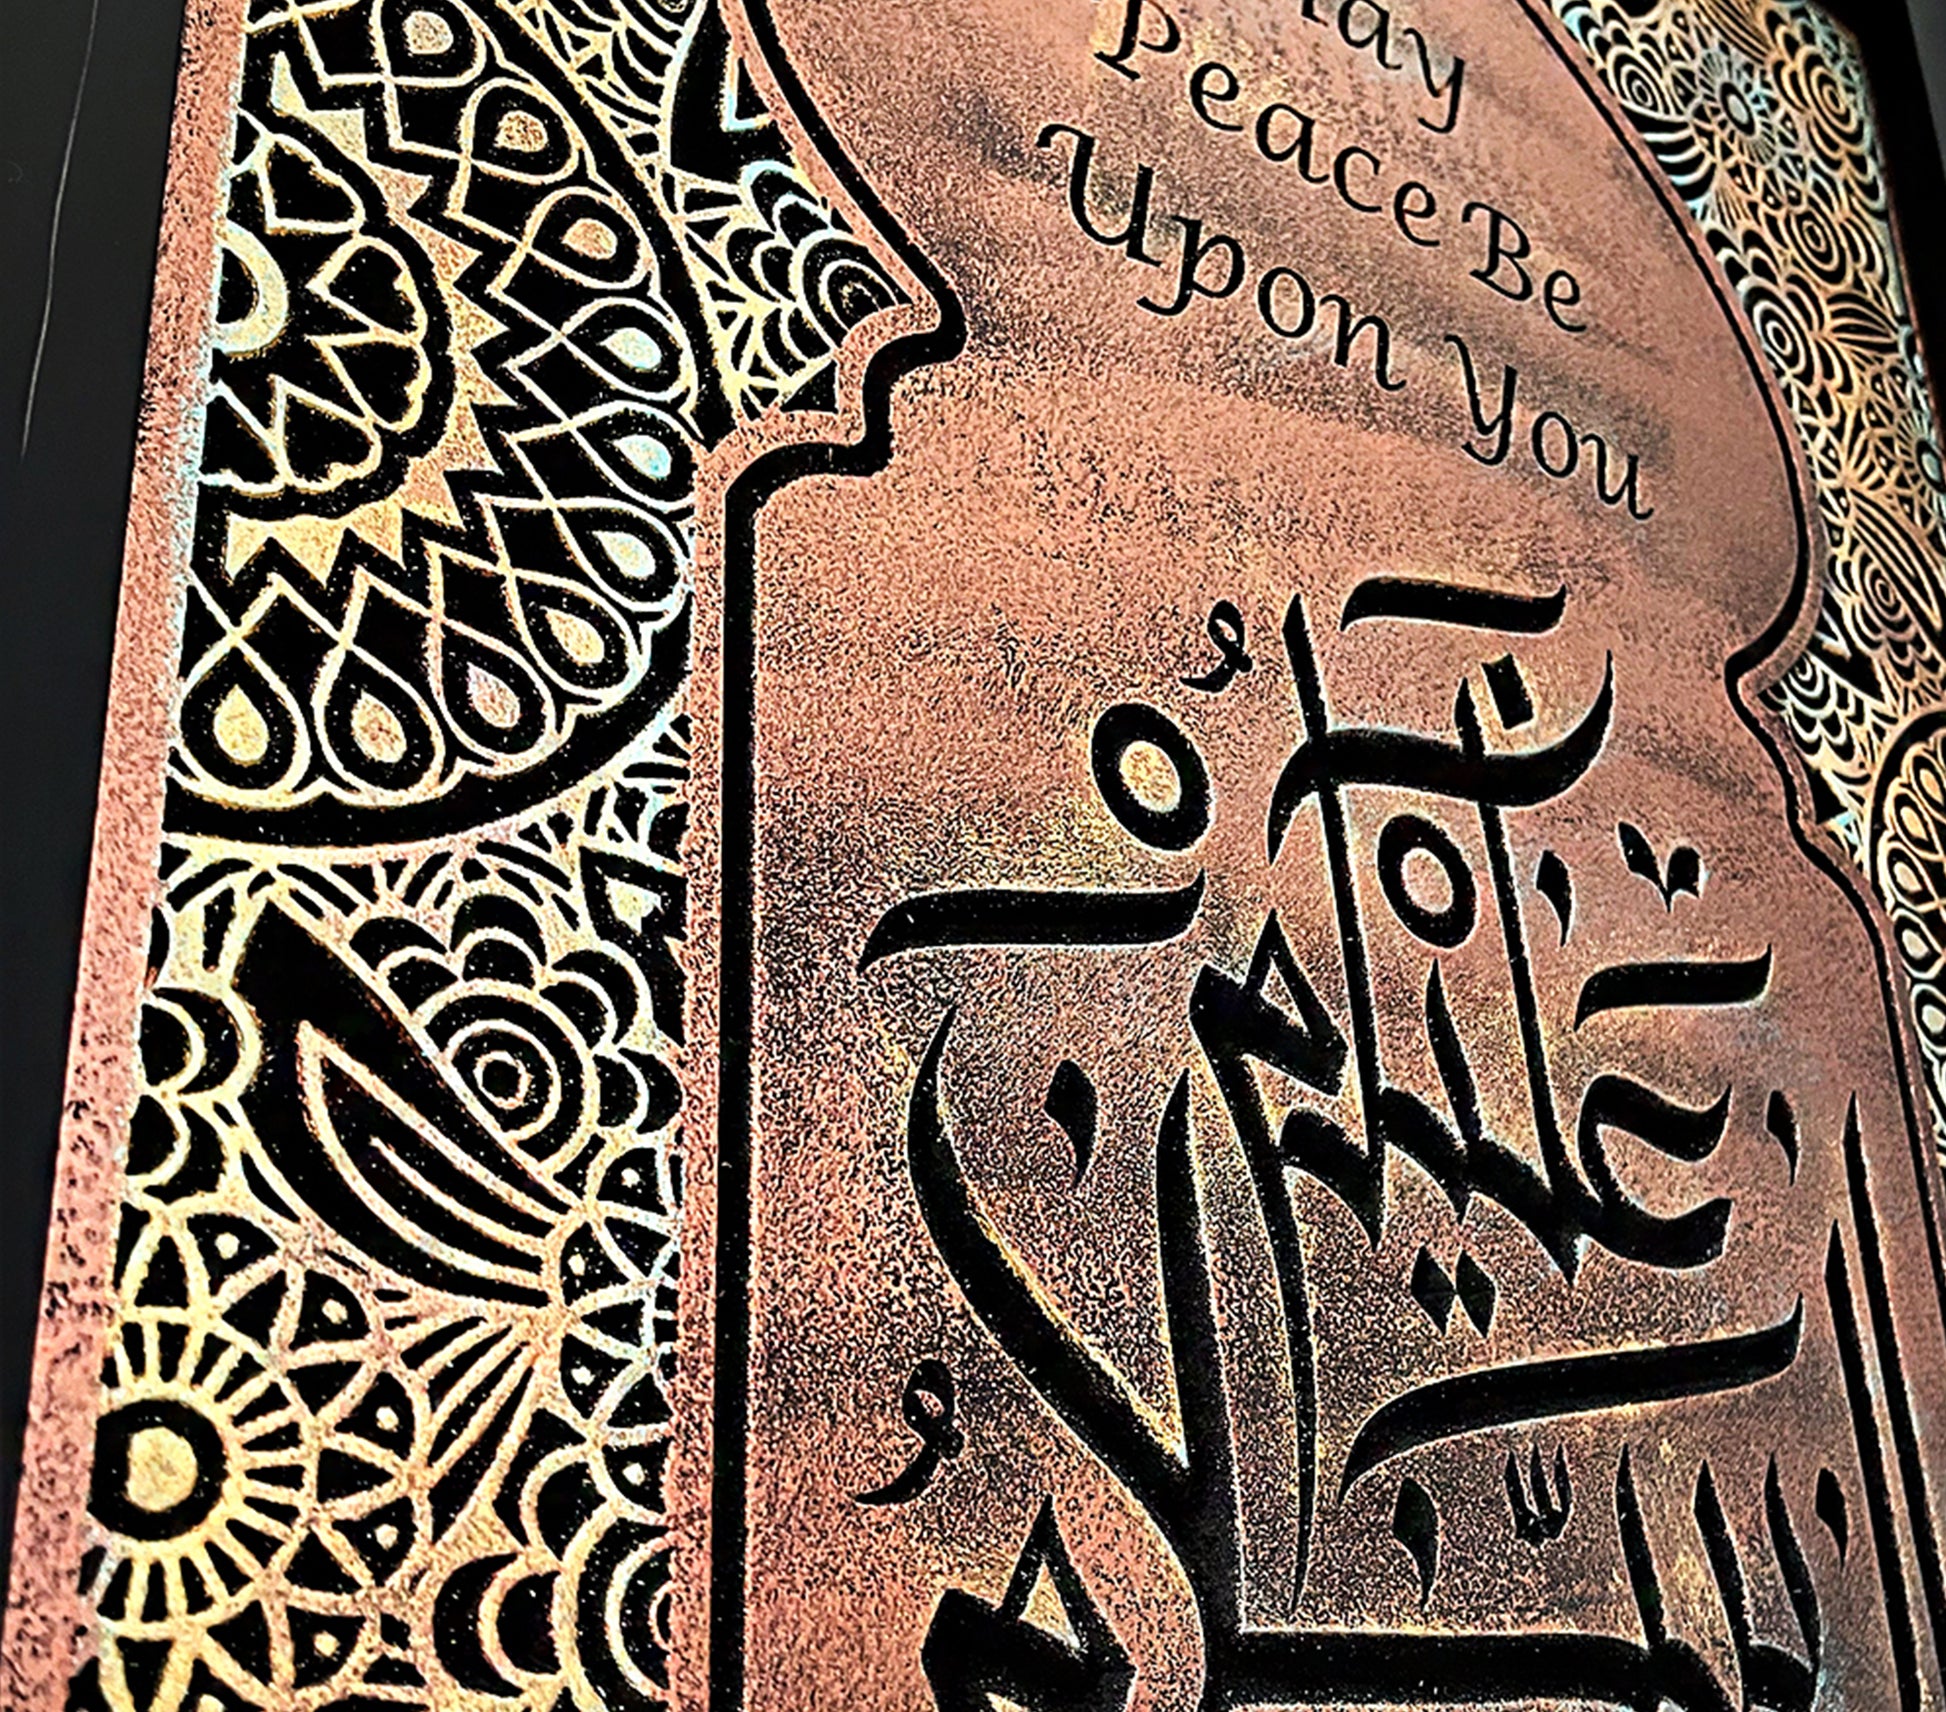 May
Peace Be
Upon You
السَّلَامُ عَلَيْكُمْ